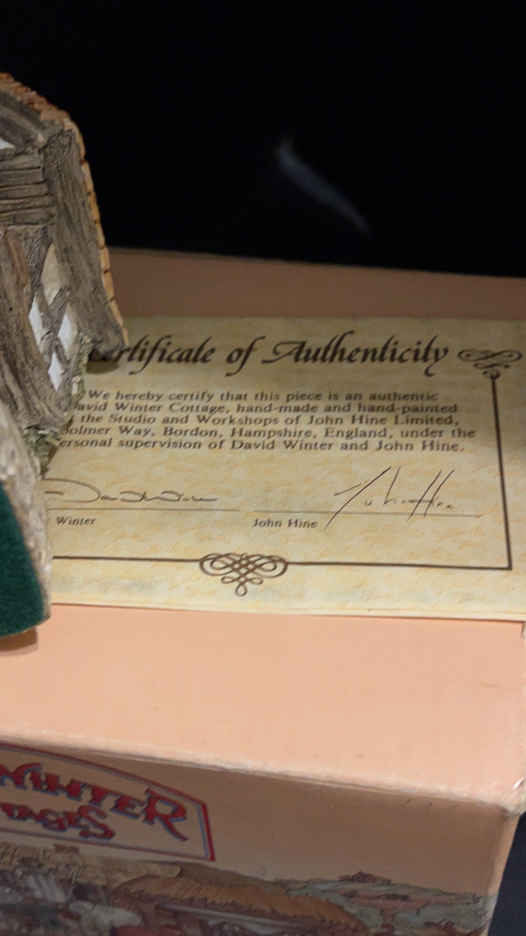 ertificate of Authenticity
We hereby certify that this piece is an authentic
avid Winter Cottage, hand-made and hand-painted
the Studio and Workshops of John Hine Limited,
olmer Way, Bordon, Hampshire, England, under the
ersonal supervision of David Winter and John Hine.
Winter
John Hine
WINTER
TAGES